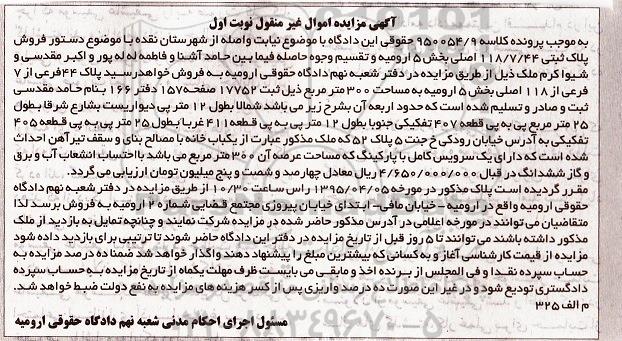 آگهی مزایده اموال غیر منقول نوبت اول
به موجب پرونده کلاسه ۹۵۰۰۵۴/۹ حقوقی این دادگاه با موضوع نیابت واصله از شهرستان نقده با موضوع دستور فروش
پلاک ثبتی ۱۱۸/۷/۴۴ اصلی بخش ۵ ارومیه و تقسیم وجوه حاصله فیما بین حامد آشنا و فاطمه له له پور و اکبر مقدسی و
شیوا کرم ملک ذیل از طریق مزایده در دفتر شعبه نهم دادگاه حقوقی ارومیه به فروش خواهد رسید پلاک ۴۴ فرعی از ۷
فرعی از ۱۱۸ اصلی بخش ۵ ارومیه به مساحت ۳۰۰ متر مربع ذیل ثبت ۱۷۷۵۲ صفحه ۱۵۷ دفتر ۱۶۶ بنام حامد مقدسی
ثبت و صادر و تسلیم شده است که حدود اربعه آن بشرح زیر می باشد شمالا بطول ۱۲ متر پی دیواریست بشارع شرقا بطول
۲۵ متر مربع پی به پی قطعه ۴۰۷ تفکیکی جنوبا بطول ۱۲ متر پی به پی قطعه ۴۱۱ غربا بطول ۲۵ متر پی به پی قطعه ۴۰۵
تفکیکی به آدرس خیابان رودکی خ جنت ۵ پلاک ۵۲ که ملک مذکور عبارت از یکباب خانه با مصالح بنای و سقف تیر آهن احداث
شده است که دارای یک سرویس کامل با پارکینگ که مساحت عرصه آن ۳۰۰ متر مربع می باشد با احتساب انشعاب آب و برق
و گاز ششدانگ در قبال ۴/۶۵۰/۰۰۰/۰۰۰ ریال معادل چهارصد و شصت و پنج میلیون تومان ارزیابی می گردد.
مقرر گردیده است پلاک مذکور در مورخه ۱۳۹۵/۰۴/۰۵ راس ساعت ۱۰/۳۰ از طریق مزایده در دفتر شعبه نهم دادگاه
حقوقی ارومیه واقع در ارومیه - خیابان مافی - ابتدای خیابان پیروزی مجتمع قضایی شماره ۲ ارومیه به فروش برسد لذا
متقاضیان می توانند در مورخه اعلامی در آدرس مذکور حاضر شده در مزایده شرکت نمایند و چنانچه تمایل به بازدید از ملک
مذکور داشته باشند می توانند تا ۵ روز قبل از تاریخ مزایده در دفتر این دادگاه حاضر شوند تا ترتیبی برای بازدید داده شود
مزایده از قیمت کارشناسی آغاز و به کسانی که بیشترین مبلغ را پیشنهاد دهند واگذار خواهد شد ضمنا ده درصد مزایده به
حساب سپرده نقدا و فی المجلس از برنده اخذ و مابقی می بایست ظرف مهلت یکماه از تاریخ مزایده به حساب سپرده
دادگستری تودیع شود و در غیر این صورت ده درصد واریزی پس از کسر هزینه های مزایده به نفع دولت ضبط خواهد شد.
م الف ۳۲۵
مسئول اجرای احکام مدنی شعبه نهم دادگاه حقوقی ارومیه